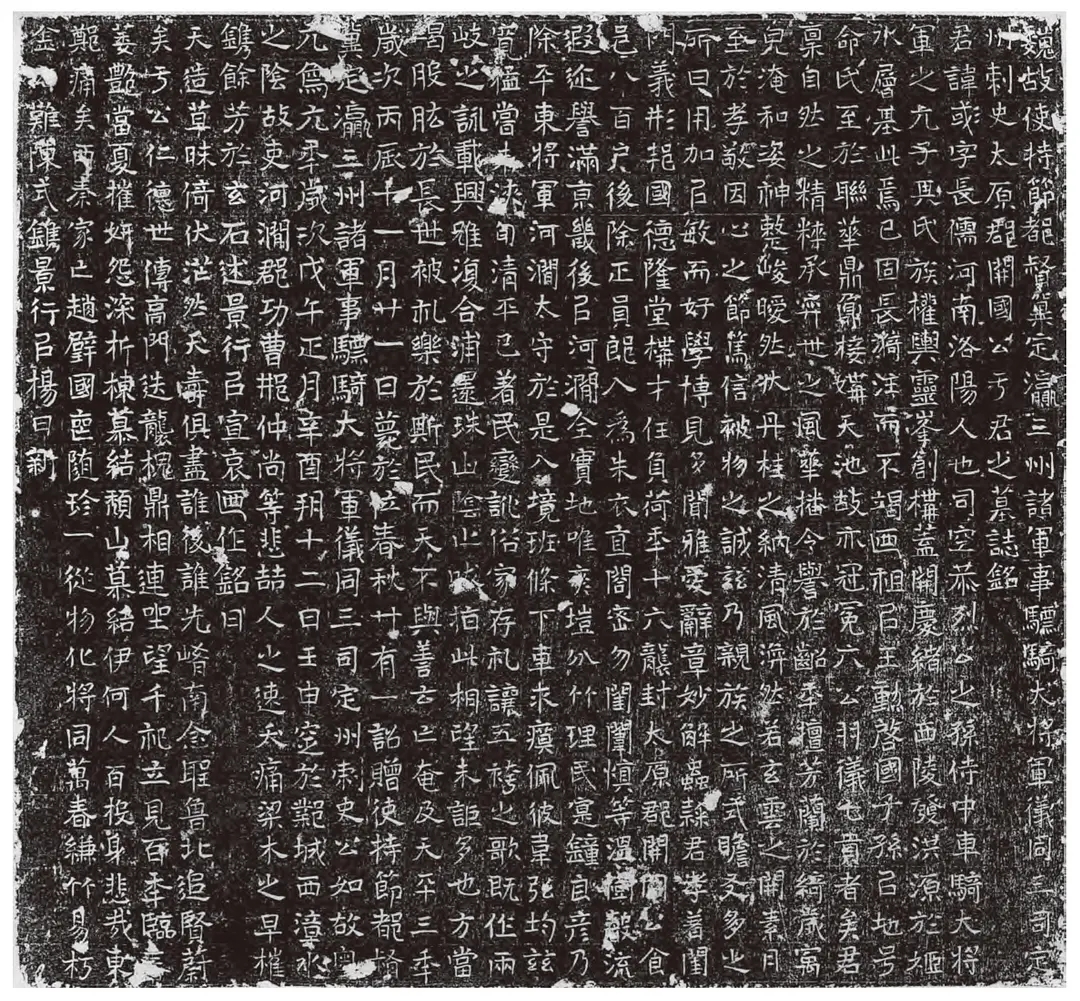 魏故使持節都督冀定瀛三州諸軍事驃騎大將軍儀同三司定
州刺史太原郡開國公于君之墓誌銘
君諱彧字長儒河南洛陽人也司空恭烈公之孫侍中車騎大將
軍之元子其氏族權輿靈峯創構蓋開慶緒於西陵發洪源於姬
水層基此焉已固長漪注而不竭西祖以王勳啓國子孫以地号
命氏至於聯華鼎鼐棲媾天池故亦冠冕六公羽儀七貴者矣君
稟自然之精粹承弈世之風華播令譽於齠年擅芳蘭於綺歲寓
皃淹和姿神整峻曖然狀丹桂之納清風濟然若玄雲之開素月
至於孝敬因心之節篤信被物之誠茲乃親族之所式瞻交多之
所曰用加以敏而好學博見多聞雅愛辭章妙解蟲隸君孝著閨
門義形邦國德隆堂構才任負荷年十六襲封太原郡開國公食
邑八百户後除正員郎入為朱衣直閤密勿閨闈慎等溫樹聲流
遐迩譽滿京畿後以河澗全實地唯爽塏分竹理民寔鍾良彦乃
除平東將軍河澗太守於是入境班條下車求瘼佩彼韋弦均茲
寬猛嘗未浹旬清平已著民變訛俗家存礼讓五袴之歌既作兩
岐之詠載興雖復合浦還珠山陰止吠拓此相望未詎多也方當
竭股肱於長世被札樂於斯民而天不與善玄亡奄及天平三年
歲次丙辰十一月廿一日薨於位春秋廿有一詔贈使持節都督
冀定瀛三州諸軍事驃騎大將軍儀同三司定州刺史公如故粤
元象元年歲次戊午正月辛酉朔十二日壬申窆於鄴城西漳水
之陰故吏河澗郡功曹邢仲尚等悲喆人之速夭痛梁木之早摧
鐫餘芳於玄石述景行以宣哀迺作銘曰
天造草昧倚伏茫然夭壽俱盡誰後誰先崤南念眶魯北追賢蔚
矣于公仁德世傳高門迭襲槐鼎相連望千祀立見百年臨
萎艷當夏摧妍怨深折棟慕結頹山慕結伊何人百投身悲哉東
鄭痛矣西秦家亡趙璧國喪随珍一從物化將同萬春縑竹易朽
金難陳式鐫景行以楊日新